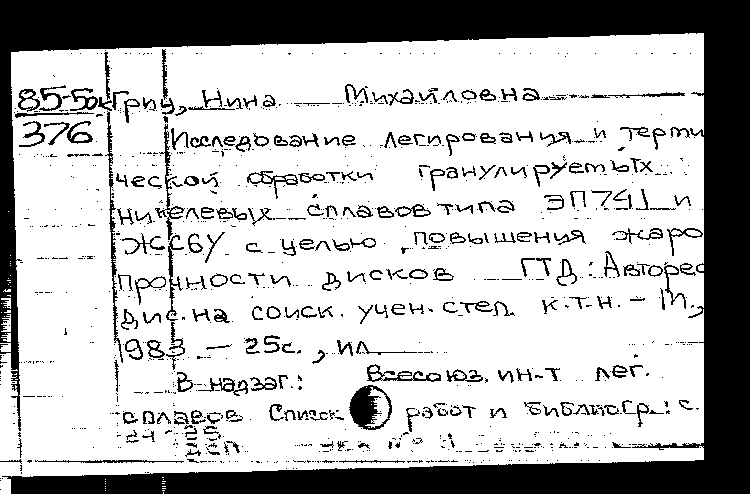 85-5ак Гриц, Нина Михайловна
376 Исследование легирования и терми
ческой обработки гранулируемых
никелевых сплавов типа ЭП741 и
ЖС6У с целью повышения жаро
прочности дисков ГТД: Авторес
дис. на соиск. учен. степ. к.т.н. – М.,
1983 – 25с., ил.
В надзаг.: Всесоюз. ин-т лег.
сплавов Список работ и библиогр.: с.
24